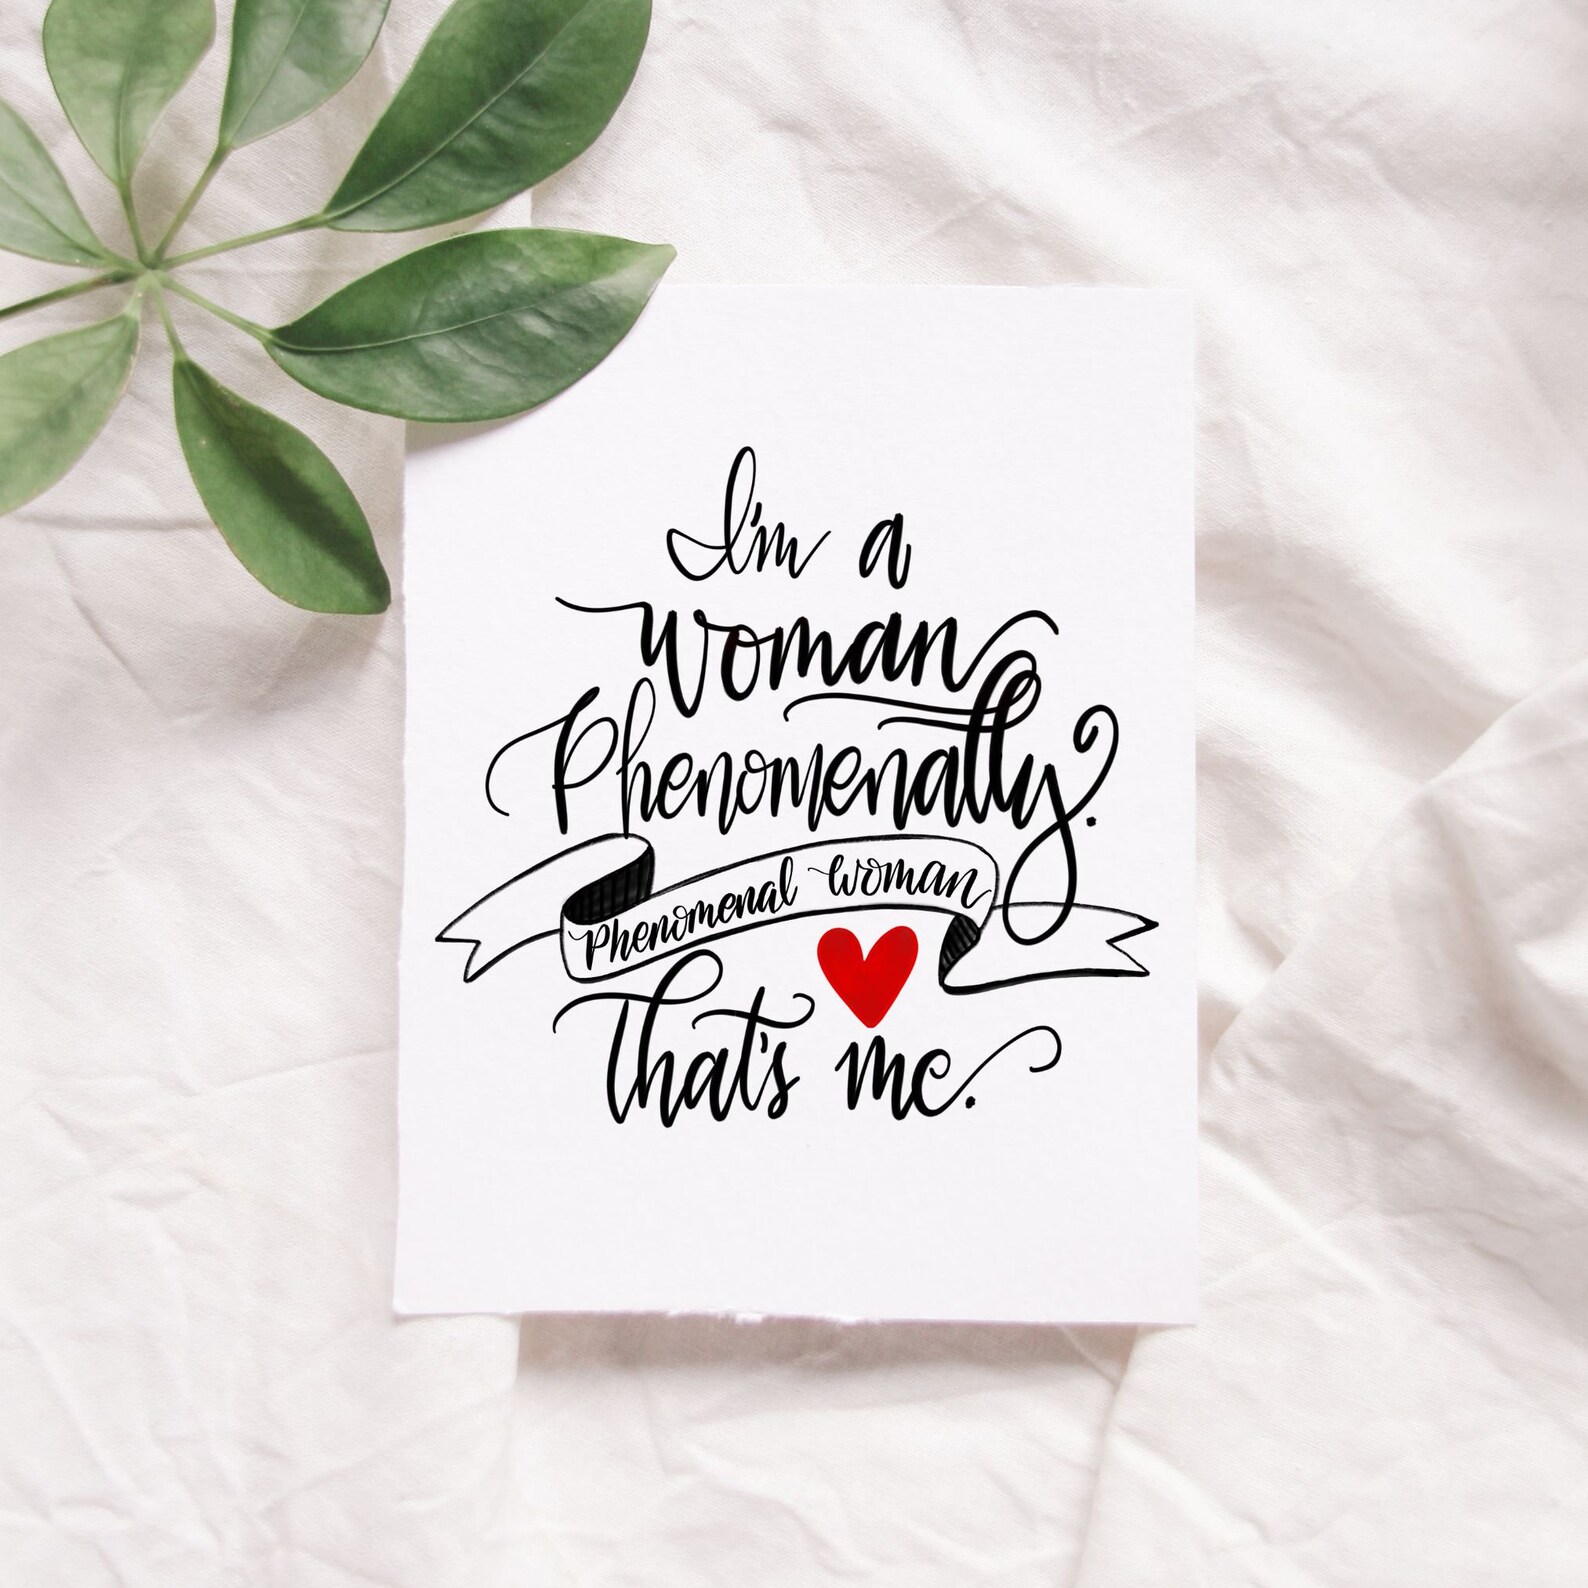 I'm a
woman
Phenomenally.
Phenomenal woman
that's me.